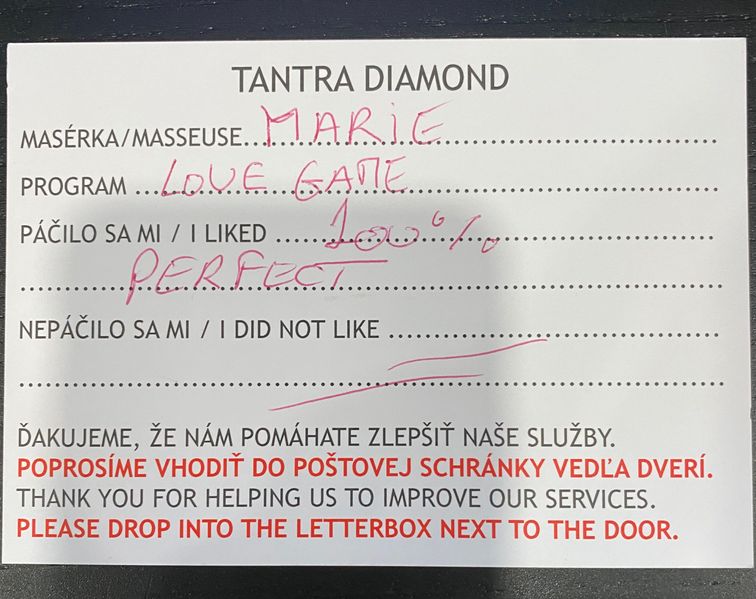 TANTRA DIAMOND
MASÉRKA/MASSEUSE...MARIE...
PROGRAM ...LOVE GAME...
PÁČILO SA MI / I LIKED ...100%...
...PERFECT...
NEPÁČILO SA MI / I DID NOT LIKE ...
ĎAKUJEME, ŽE NÁM POMÁHATE ZLEPŠIŤ NAŠE SLUŽBY.
POPROSÍME VHODIŤ DO POŠTOVEJ SCHRÁNKY VEDĽA DVERÍ.
THANK YOU FOR HELPING US TO IMPROVE OUR SERVICES.
PLEASE DROP INTO THE LETTERBOX NEXT TO THE DOOR.